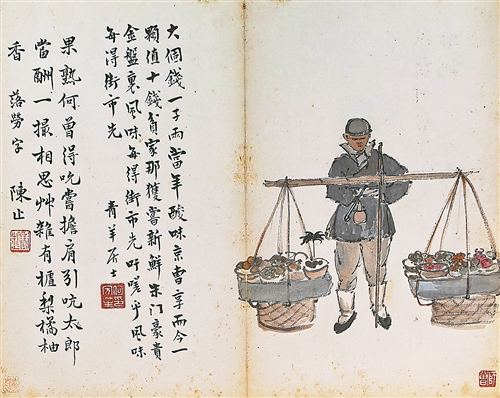 大個錢一子兩當年酸味京曹享而今一
顆值十錢貧家那獲嘗新鮮朱门豪貴
金盤裏風味每得街市先吁嗟乎風味
每得街市先
青羊居士
果熟何曾得吮嘗擔肩引吭太郎
當酬一撮相思艸雜有樝梨橘柚
香 落勞字 陳止